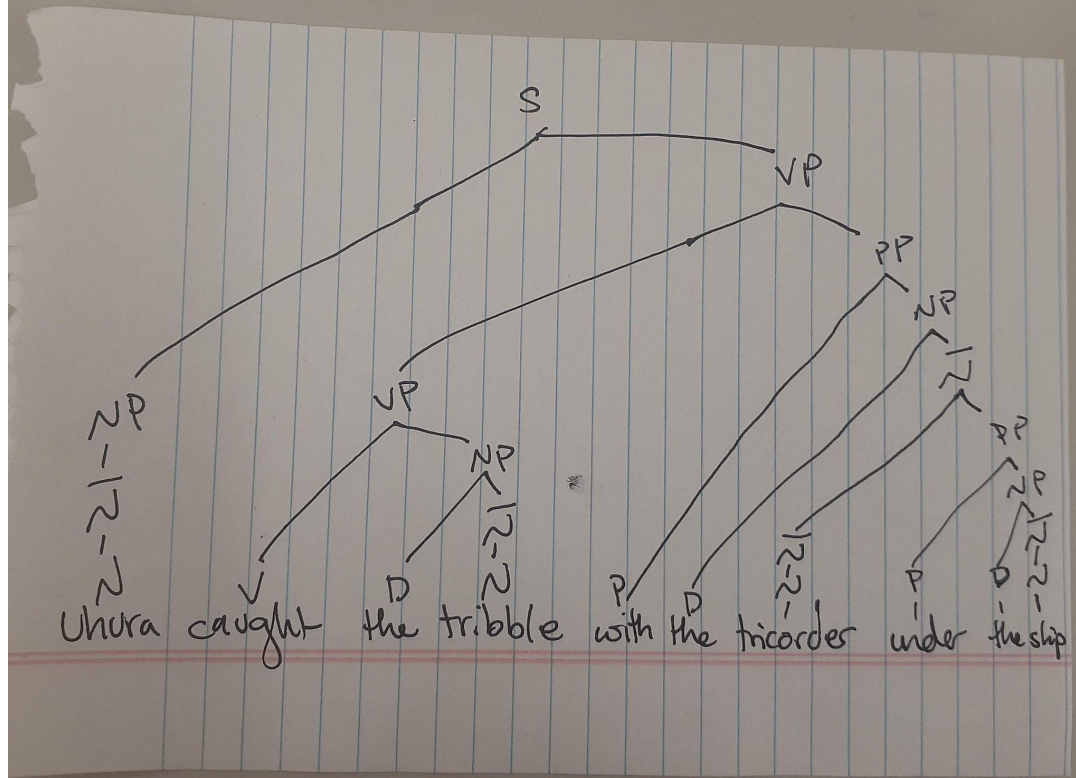 S
VP
PP
NP
N̄
NP VP PP
NP NP
N̄ N̄ N̄ N̄
N V D N P D N P D N
Uhura caught the tribble with the tricorder under the ship